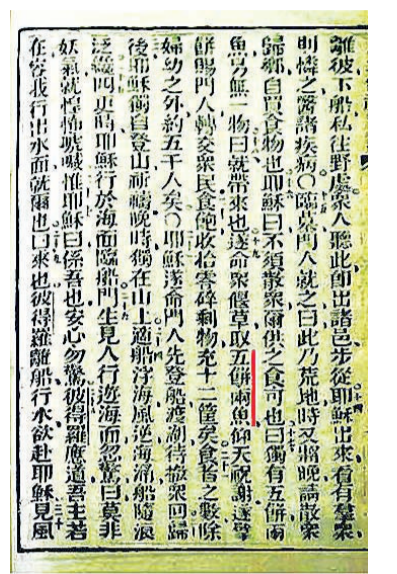 離彼下船私往野處衆人聽此卽出諸邑步從耶穌出來看有羣衆
則憐之醫諸疾病〇臨暮門人就之曰此乃荒地時又將晚請散衆
歸鄉自買食物也耶穌曰不須散衆爾供之食可也曰獨有五餅兩
魚另無一物曰就帶來也遂命衆偃草取五餅兩魚仰天祝謝遂擘
餅賜門人轉交衆民食飽收拾零碎剩物充十二筐矣食者之數除
婦幼之外約五千人矣〇耶穌遂命門人先登船渡湖待撤衆回歸
後耶穌獨自登山祈禱晚時獨在山上適船浮海風逆海涌船隨浪
泛幾四更間耶穌行於海面臨船門生見人行遊海面忽驚曰莫非
妖氣就惶怖號喊惟耶穌曰係吾也安心勿驚彼得羅應道吾主若
在容我行出水面就爾也曰來也彼得羅離船行水欲赴耶穌見風